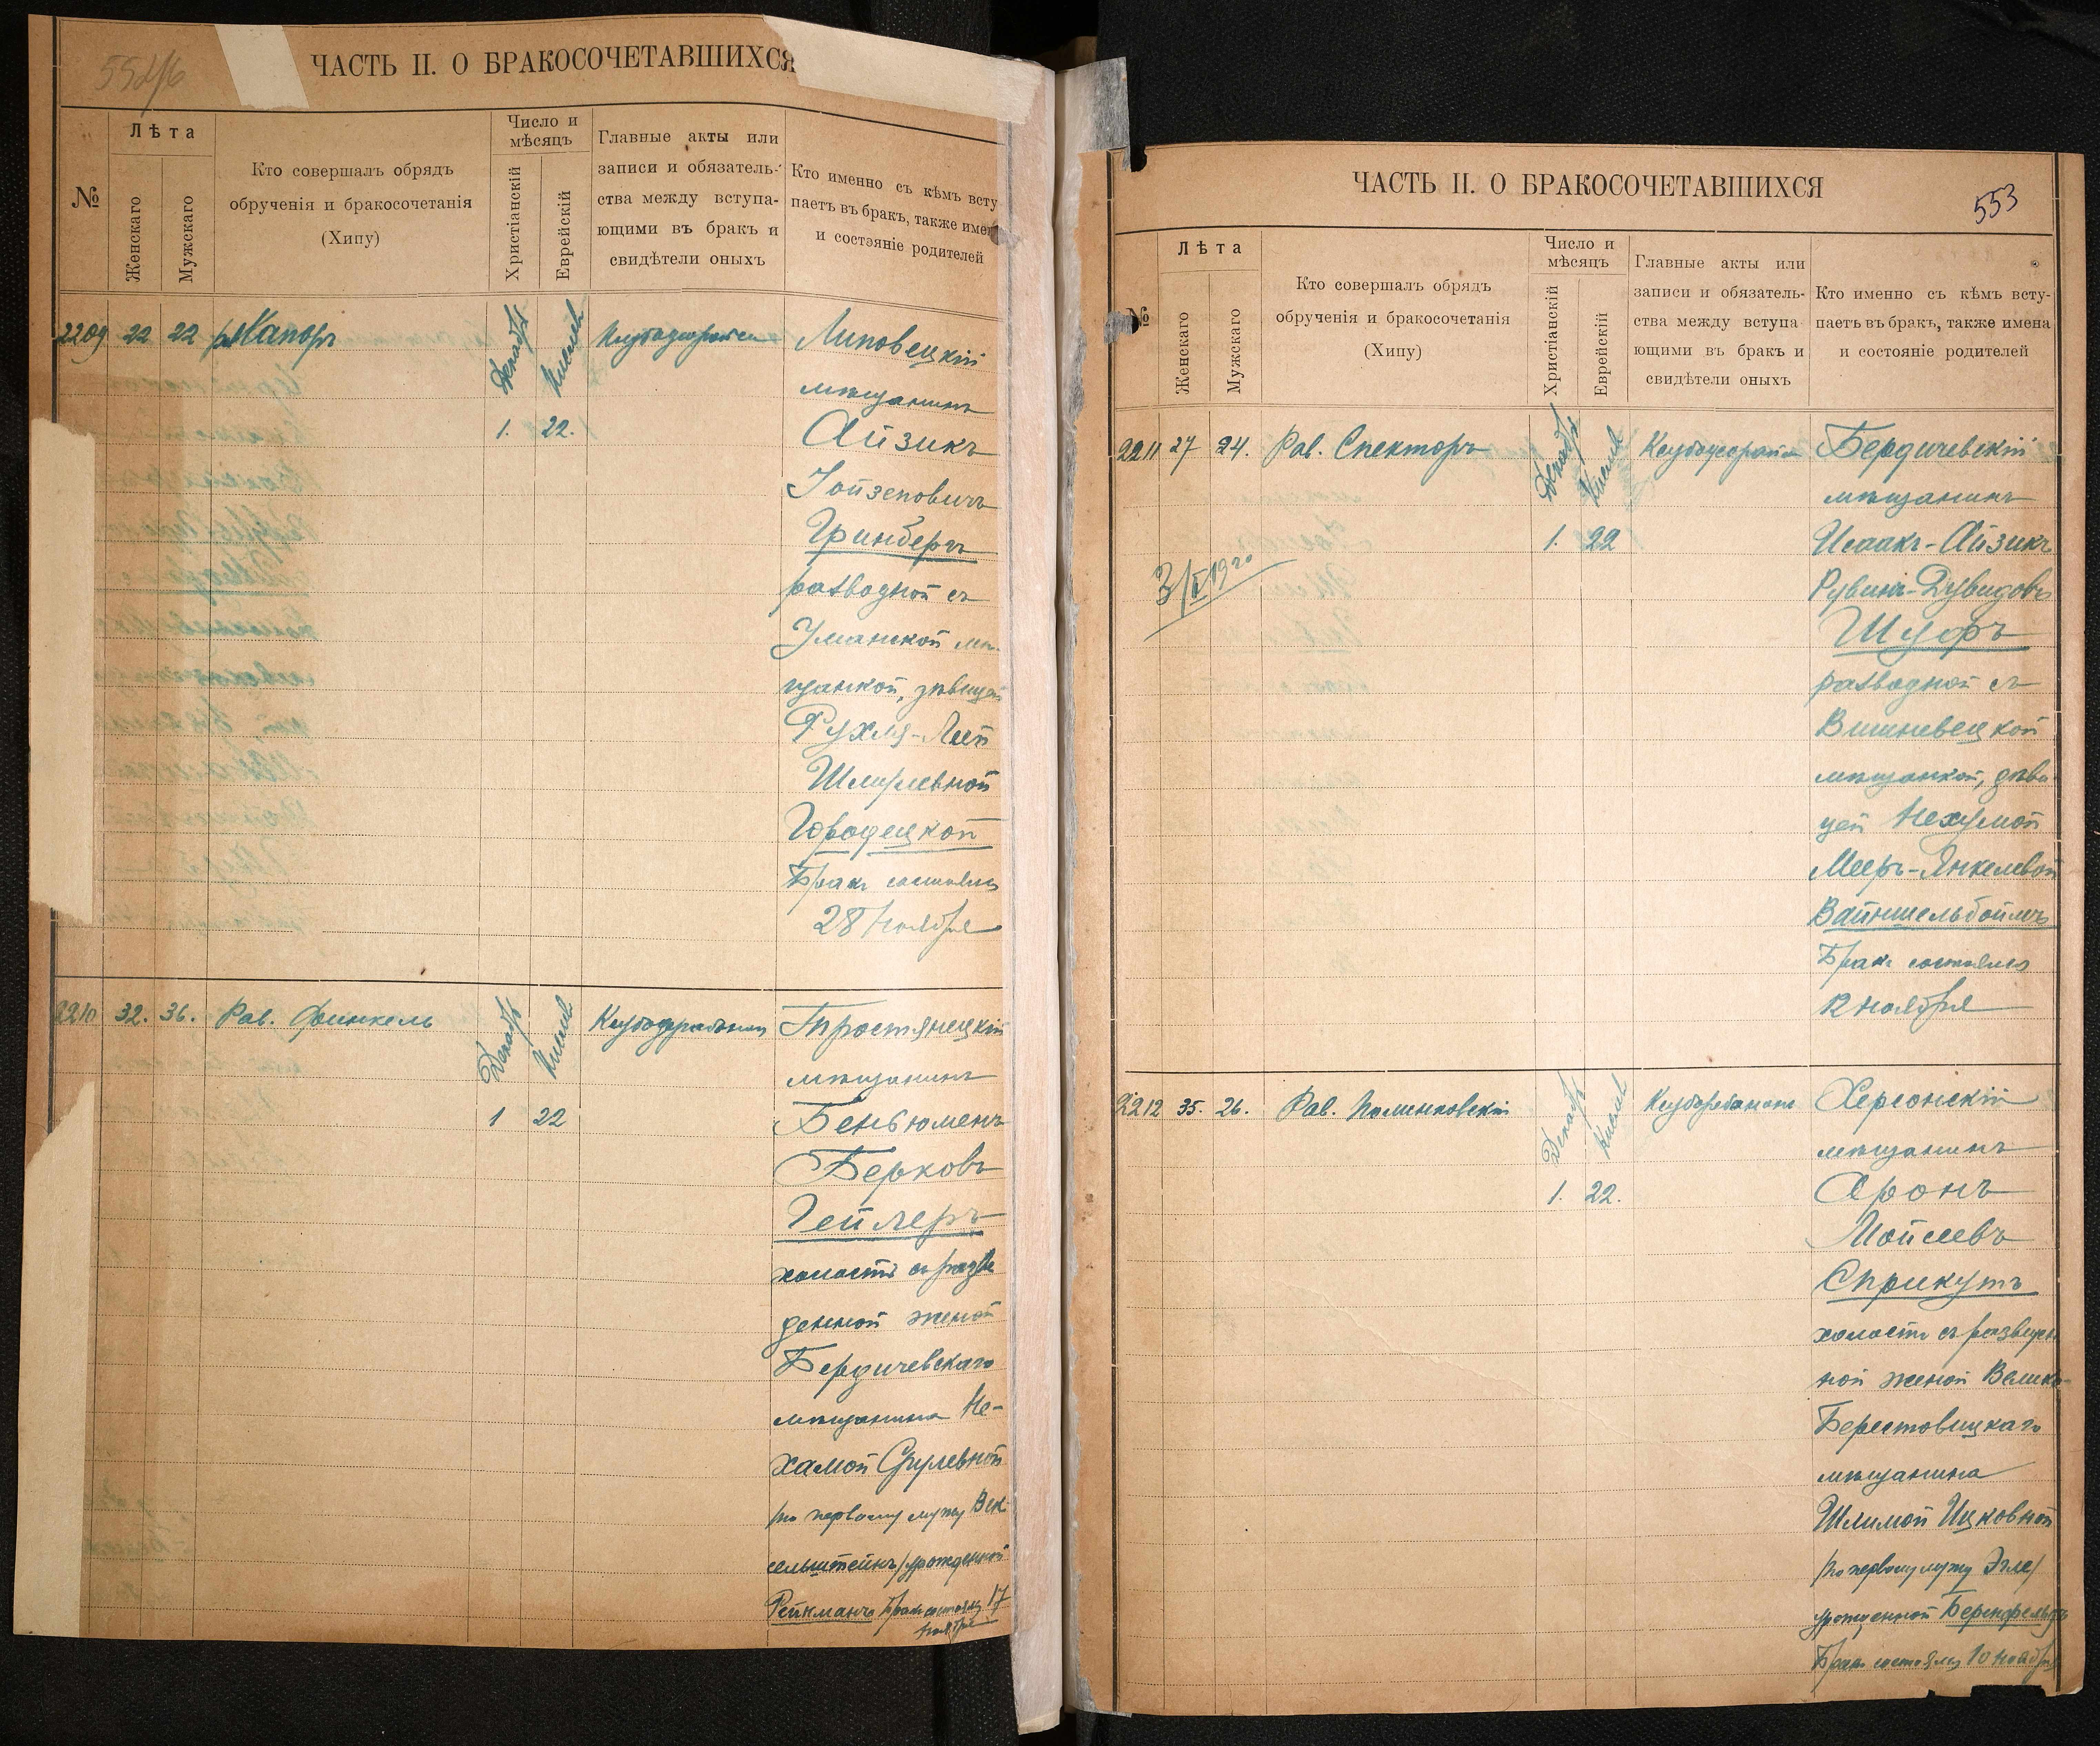 552/б
ЧАСТЬ II. О БРАКОСОЧЕТАВШИХСЯ
№
Лѣта
Женскаго
Мужскаго
Кто совершалъ обрядъ
обрученія и бракосочетанія
(Хипу)
Число и
мѣсяцъ
Христіанскій
Еврейскій
Главные акты или
записи и обязатель-
ства между вступа-
ющими въ бракъ и
свидѣтели оныхъ
Кто именно съ кѣмъ всту
паетъ въ бракъ, также имен
и состояніе родителей
2209 22 22 Капоръ
Декабрь Кислевъ
1. 22.
Липовецкій
мѣщанинъ
Айзикъ
Іойзеповичъ
Гринберъ
разводной съ
Уманской мѣ-
щанкой, дѣвицей
Рухля-Леей
Шмулевной
Городецкой
Бракъ состоялся
28 Ноября
2210 32. 36. Рав. Финкель
Декабрь Кислевъ
1 22
Тростянецкій
мѣщанинъ
Беньюменъ
Берковъ
Гейлеръ
холостъ съ разве
денной женой
Бердичевскаго
мѣщанина Не-
хамой Срулевной
/по первому мужу Век-
сельштейнъ/ урожденной
Рейкманъ Бракъ состоялся 17
ноября
ЧАСТЬ II. О БРАКОСОЧЕТАВШИХСЯ
553
№
Лѣта
Женскаго
Мужскаго
Кто совершалъ обрядъ
обрученія и бракосочетанія
(Хипу)
Число и
мѣсяцъ
Христіанскій
Еврейскій
Главные акты или
записи и обязатель-
ства между вступа
ющими въ бракъ и
свидѣтели оныхъ
Кто именно съ кѣмъ всту-
паетъ въ бракъ, также имена
и состояніе родителей
2211 27 24. Рав. Спекторъ
Декабрь Кислевъ
1. 22
Бердичевскій
мѣщанинъ
Исаакъ-Айзикъ
Рувинъ-Дувидовъ
Шуфъ
разводной съ
Вишневецкой
мѣщанкой, дѣви-
цей Нехумой
Мееръ-Янкелевой
Вайншельбоймъ
Бракъ состоялся
12 ноября
2212 35. 26. Рав. Полинковскій
Декабрь Кислевъ
1. 22.
Херсонскій
мѣщанинъ
Аронъ
Мойсеевъ
Сприкутъ
холостъ съ разведен
ной женой Велико-
Берестовицкаго
мѣщанина
Шлимой Ицковной
/по первому мужу Эгле/
урожденной Беренфельдъ
Бракъ состоялся 10 ноября